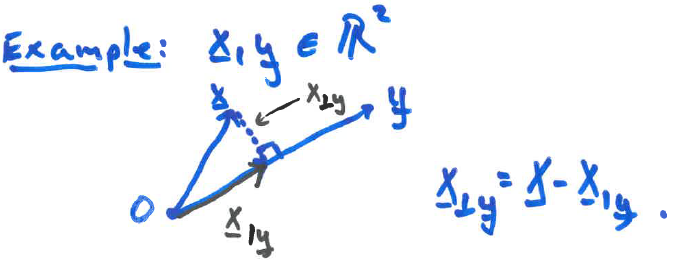 Example: x, y ∈ ℝ²
x
x⊥y
y
O
x|y
x⊥y = x - x|y.